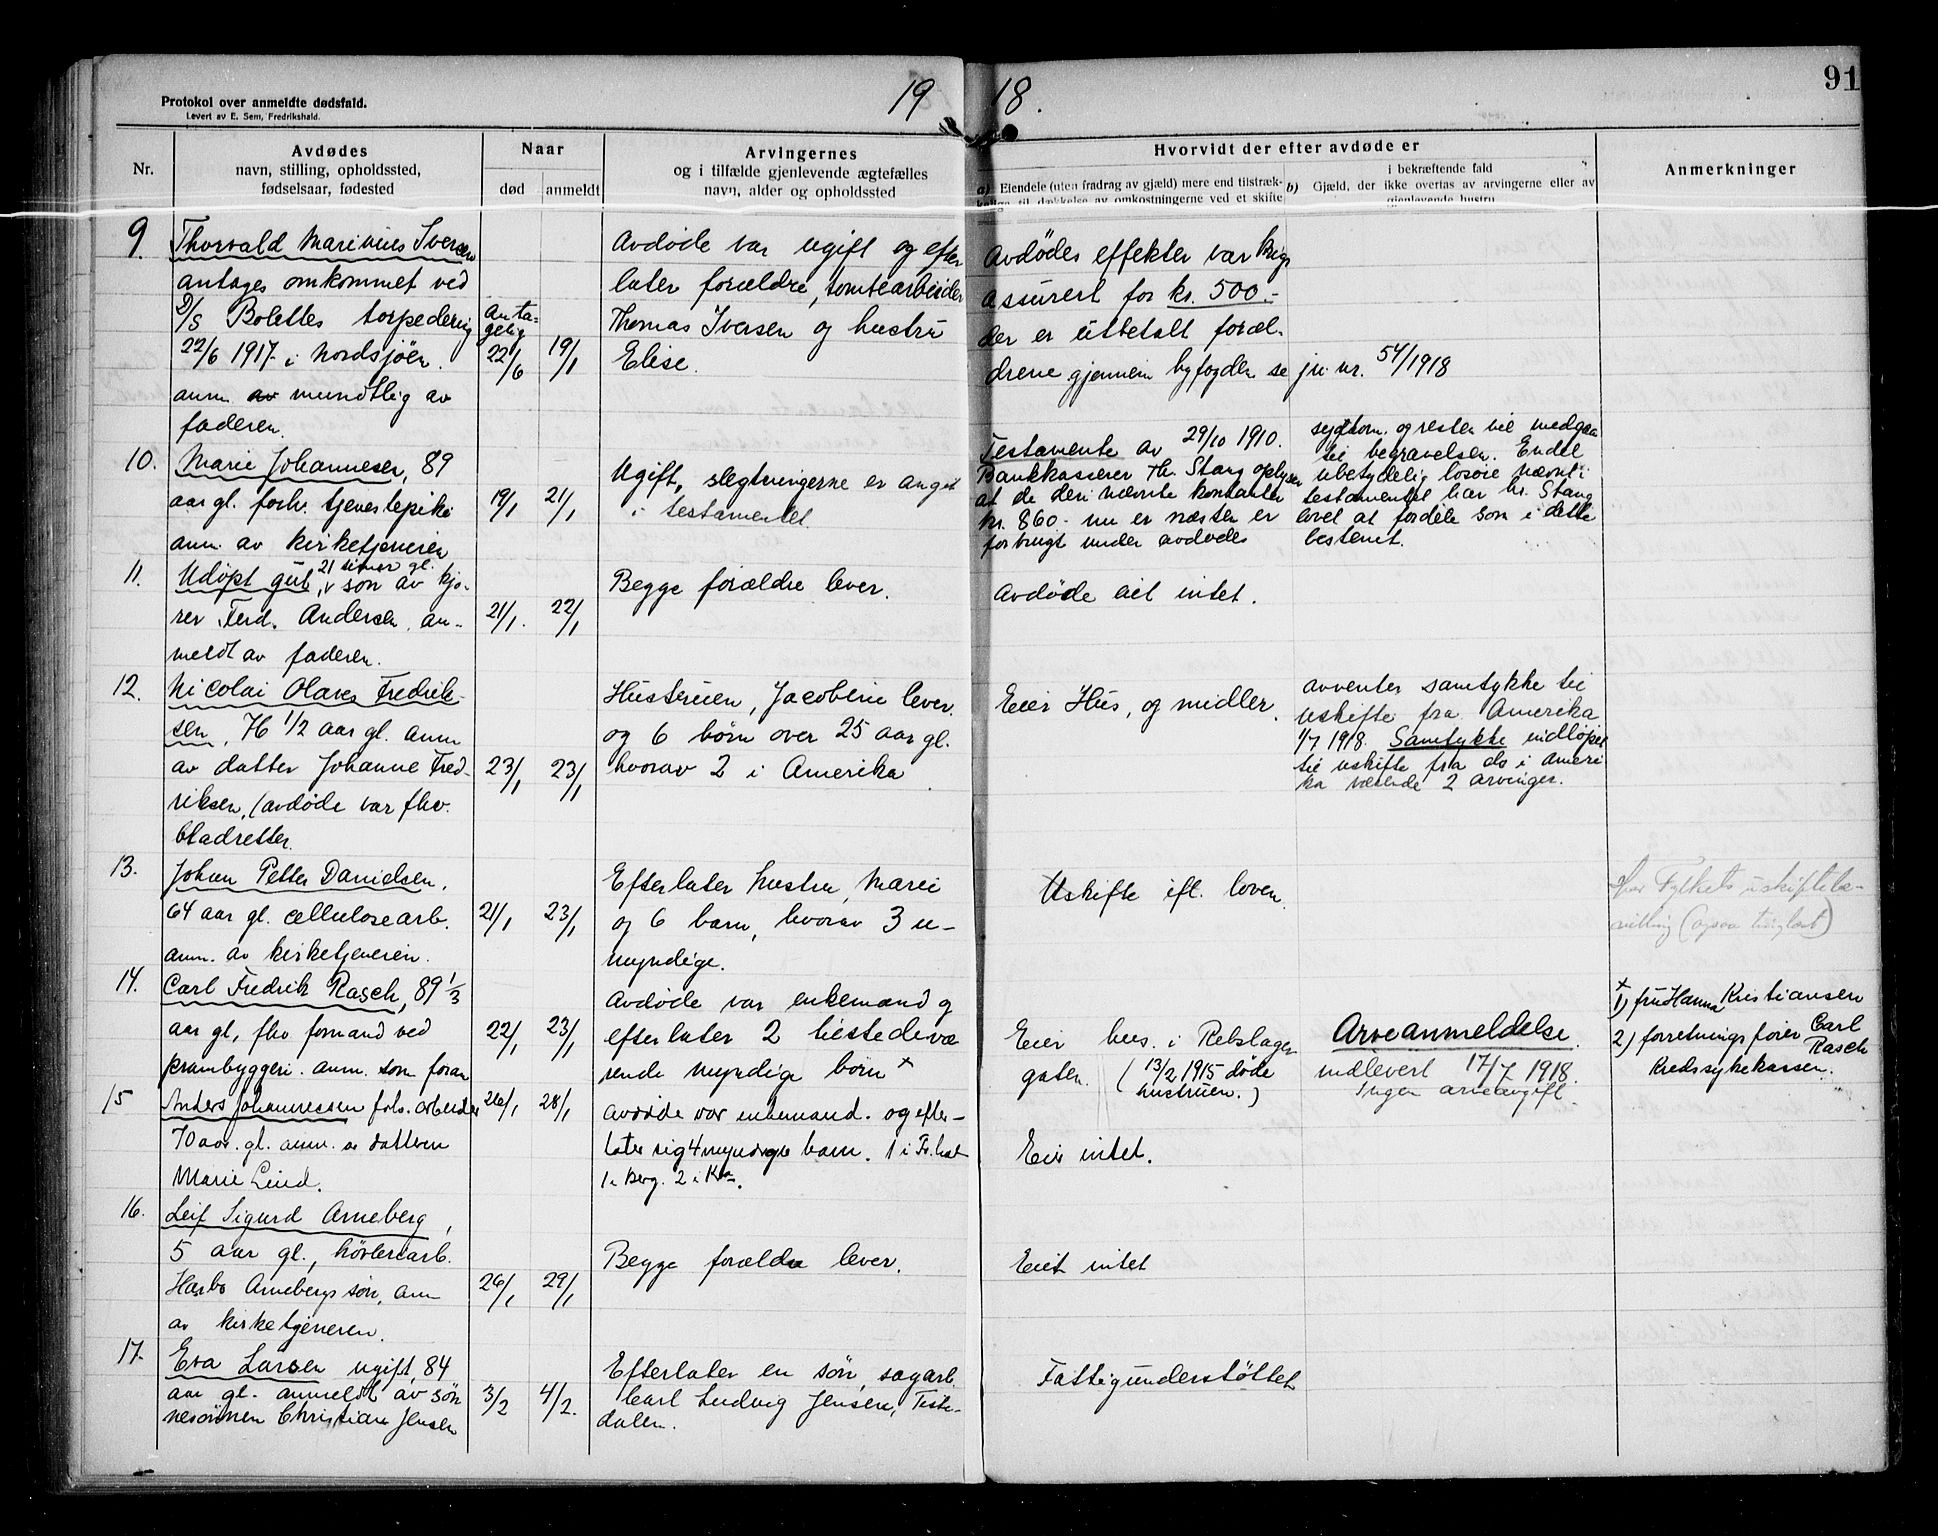 19 18.
91
Protokol over anmeldte dødsfald.
Levert av E. Sem, Fredrikshald.
Nr.
Avdødes
navn, stilling, opholdssted,
fødselsaar, fødested
Naar
død
anmeldt
Arvingernes
og i tilfælde gjenlevende ægtefælles
navn, alder og opholdssted
Hvorvidt der efter avdøde er
a) Eiendele (uten fradrag av gjæld) mere end tilstræk-
kelige til dækkelse av omkostningerne ved et skifte
b) Gjæld, der
i bekræftende fald
ikke overtas av arvingerne eller av
gjenlevende hustru
Anmerkninger
9. Thorvald Marinius Iversen
antages omkommet ved
D/S Bolettes torpedering
22/6 1917 i Nordsjøen.
anm. mundtlig av
faderen.
Anta-
gelig
22/6
19/1
Avdøde var ugift og efter
later forældre, tomtearbeider
Thomas Iversen og hustru
Elise.
Avdødes effekter var krigs
assurert for kr. 500.-
der er utbetalt foræl-
drene gjennem byfogden se jn. nr. 54/1918
10. Marie Johannesen, 89
aar gl. forh. tjenestepike
anm. av kirketjeneren
19/1
21/1
Ugift, slegtningerne er anget
i testamentet.
Testamente av 29/10 1910.
Bankkasserer Th. Stang oplyser
at de deri nævnte kontanter
kr. 860.- nu er næsten er
forbrugt under avdødes
sygdom. og resten vil medgaa
til begravelsen. Endel
ubetydelig losøie nævnt i
testamentet har hr. Stang
lovet at fordele som i dette
bestemt.
11. Udøpt gut, 21 timer gl.
søn av kjø-
rer Ferd. Andersen, an-
meldt av faderen.
21/1.
22/1
Begge forældre lever.
Avdøde eiet intet.
12. Nicolai Olaves Fredrik-
sen, 76 1/2 aar gl. anm
av datter Johanne Fred-
riksen, (avdøde var fhv.
bladsetter.
23/1
23/1
Hustruen, Jacobine lever.
og 6 børn over 25 aar gl.
hvorav 2 i Amerika
Eier Hus, og midler.
avventer samtykke til
uskifte fra Amerika
1/7 1918. Samtykke indløpet
til uskifte fra de i Ameri
ka værende 2 arvinger.
13. Johan Petter Danielsen.
64 aar gl. cellulosearb.
anm. av kirketjeneren.
21/1
23/1
Efterlater hustru, Marie
og 6 barn, hvorav 3 u-
myndige.
Uskifte ifl. loven.
Har Fylkets uskiftebe-
villing (ogsaa tinglæst)
14. Carl Fredrik Rasch, 89 1/3
aar gl, fhv formand ved
prambyggeri. anm. som foran
22/1
23/1
Avdøde var enkemand og
efterlater 2 tilstedevæ
rende myndige børn x
Eier hus i Rebslager
gaten. (13/2 1915 døde
hustruen.)
Arveanmeldelse.
indlevert 17/7 1918.
Ingen arveavgift.
x
1) fru Hanna Kristiansen
2) forretningsfører Carl
Rasch
Kredssykekassen.
15 Anders Johannessen fabr. arbeider
70 aar. gl. anm. av datteren
Marie Lind.
26/1
28/1
avdøde var enkemand. og efter-
later sig 4 myndige barn. 1 i Fr.hald
1 i Berg. 2 i Kra.
Eier intet.
16. Leif Sigurd Arneberg,
5 aar gl., høvleriarb.
Arnebergs søn, anm
av kirketjeneren.
26/1
29/1
Begge forældre lever.
Eiet intet
17. Eva Larsen ugift, 84
aar gl. anmeldt av søn
nesønnen Christian Jensen
3/2
4/2.
Efterlater en søn, sagarb.
Carl Ludvig Jensen, Tiste-
dalen.
Fattigunderstøttet